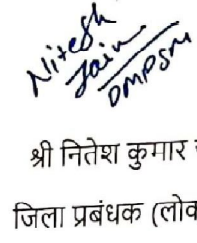 Nitesh
Jain
DMPSM
श्री नितेश कुमार
जिला प्रबंधक (लोक